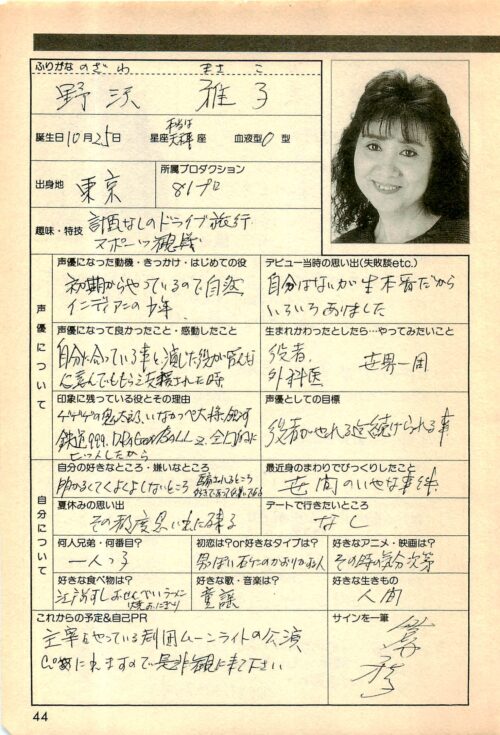 ふりがな のざわ まさこ
野沢 雅子
誕生日10月25日 星座 天秤 座 血液型 O 型
出身地 東京
所属プロダクション
81プロ
趣味・特技
計画なしのドライブ旅行
スポーツ観戦
声優について
声優になった動機・きっかけ・はじめての役
初期からやっているので自然
インディアンの少年
デビュー当時の思い出(失敗談etc.)
自分はないが生本番だから
いろいろありました
声優になって良かったこと・感動したこと
自分に合っている事と演じた役が皆んな
に喜んでもらえ支援された時
生まれかわったとしたら…やってみたいこと
役者
外科医
世界一周
印象に残っている役とその理由
ゲゲゲの鬼太郎、いなかっぺ大将、銀河
鉄道999、DRAGON BALL Z、
ヒットしたから
声優としての目標
役者がやれる迄続けられる事
自分について
自分の好きなところ・嫌いなところ
明かるくてくよくよしないところ
最近身のまわりでびっくりしたこと
世間のいやな事件
夏休みの思い出
その都度思い出に残る
デートで行きたいところ
なし
何人兄弟・何番目?
一人っ子
初恋は?or好きなタイプは?
男っぽい
好きなアニメ・映画は?
その時の気分次第
好きな食べ物は?
焼おにぎり
好きな歌・音楽は?
童謡
好きな生きもの
人間
これからの予定&自己PR
主宰をやっている劇団ムーンライトの公演
是非観に来て下さい
サインを一筆
44